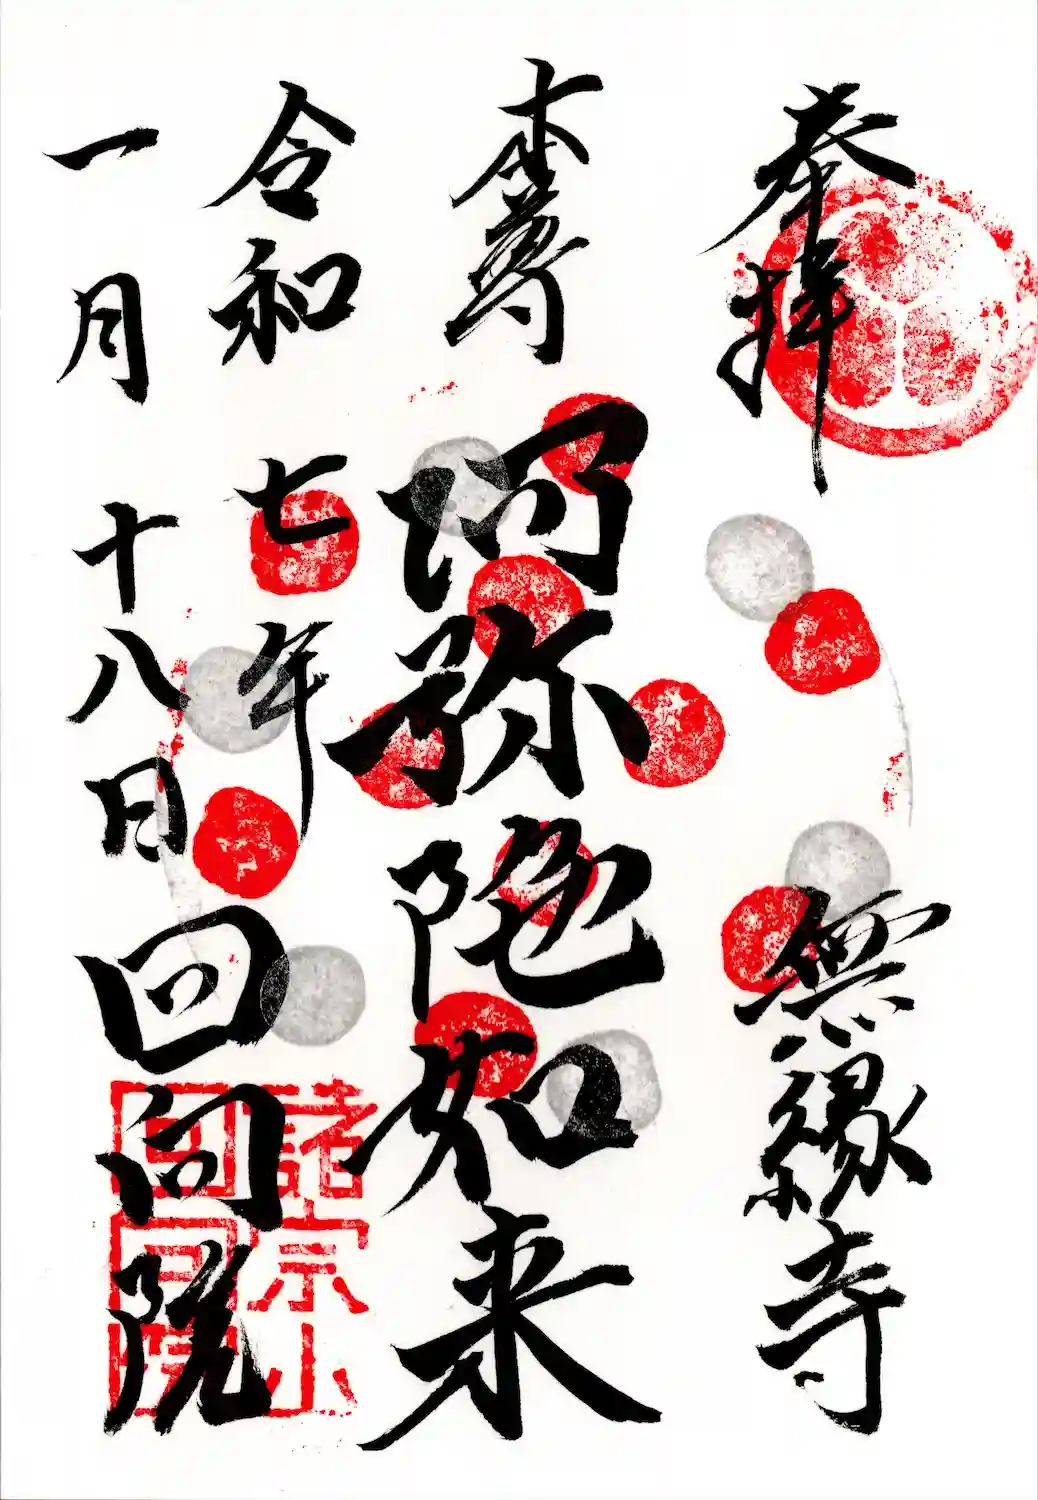 奉拝
無縁寺
本尊
阿弥陀如来
令和七年
一月十八日
回向院
諸宗山
回向院